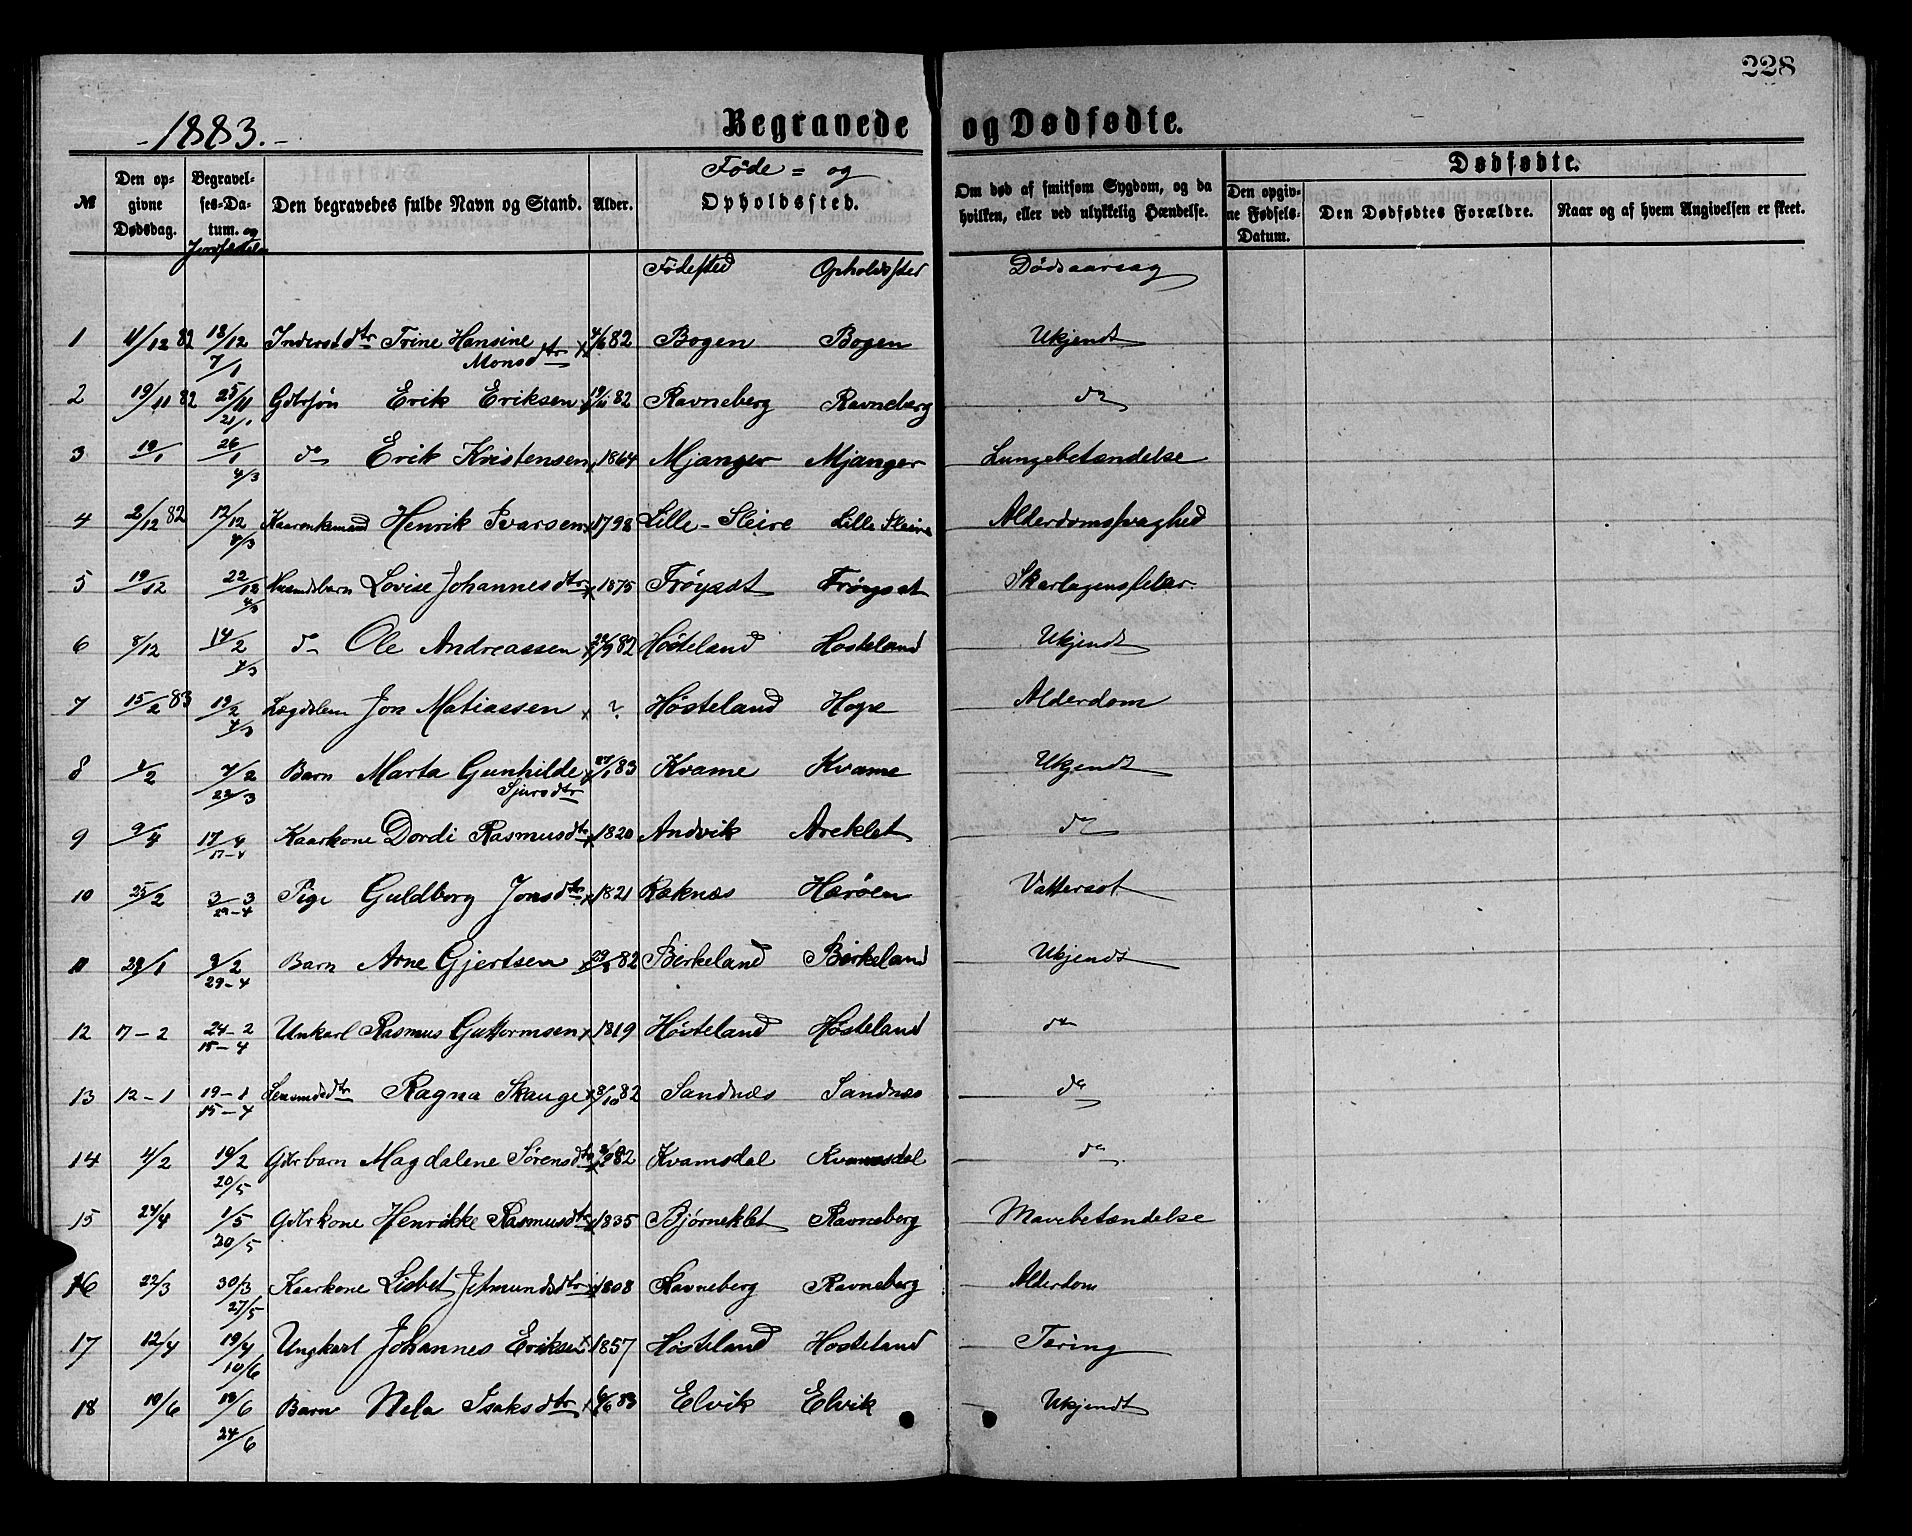 228
-1883.-
Begravede og Dødfødte.
№ Den opgivne Dødsdag. Begravelses-Datum. og Jordfæstelse Den begravedes fulde Navn og Stand. Alder. Føde = og Opholdssted. Om død af smitsom Sygdom, og da hvilken, eller ved ulykkelig Hændelse. Dødfødte. Den opgivne Fødsels-Datum. Den Dødfødtes Forældre. Naar og af hvem Angivelsen er skeet.
Fødested Opholdssted Dødsaarsag
1 11/12 82 18/12 7/1 Inderstdtr Trine Hansine Monsdtr 4/6 82 Bogen Bogen Ukjendt
2 19/11 82 25/11 21/1 Gdbrsøn Erik Eriksen 19/11 82 Ravneberg Ravneberg do
3 19/1 26/1 4/3 do Erik Kristensen 1864 Mjanger Mjanger Lungebetændelse
4 2/12 82 12/12 4/3 Kaarenkemand Henrik Ivarsen 1798 Lille-Sleire Lille Sleire Alderdomssvaghed
5 19/12 22/12 4/3 Husmdsbarn Lovise Johannesdtr 1875 Frøysæt Frøysæt Skarlagensfeber
6 8/12 14/2 4/3 do Ole Andreassen 82 Høsteland Høsteland Ukjendt
7 15/2 83 19/2 4/3 Lægdslem Jon Matiassen ? Høsteland Hope Alderdom
8 1/2 7/2 22/3 Barn Marta Gunhilde Sjursdtr 27/1 83 Kvame Kvame Ukjendt
9 9/4 17/4 17-4 Kaarkone Dordi Rasmusdtr 1820 Andvik Areklet do
10 25/2 3-3 29-4 Pige Guldborg Jonsdtr 1821 Ræknæs Hærøen Vattersot
11 29/1 9/2 29-4 Barn Arne Gjertsen 82 Birkeland Birkeland Ukjendt
12 17-2 24-2 15-4 Unkarl Rasmus Guttormsen 1819 Høsteland Høsteland do
13 12-1 19-1 15-4 Lensmdsdtr Ragna Skauge 8/10 82 Sandnæs Sandnæs do
14 4/2 19/2 20/5 Gdbrbarn Magdalene Sørensdtr 82 Kvamsdal Kvamsdal do
15 24/4 1/5 20/5 Gdbrkone Henrikke Rasmusdtr 1835 Bjørneklet Ravneberg Mavebetændelse
16 22/3 30/3 27/5 Kaarkone Lisbet Jetmundsdtr 1808 Ravneberg Ravneberg Alderdom
17 12/4 19/4 10/6 Ungkarl Johannes Eriksen 1857 Høsteland Høsteland Tæring
18 10/6 19/6 24/6 Barn Nela Isaksdtr 6/6 83 Elvik Elvik Ukjendt